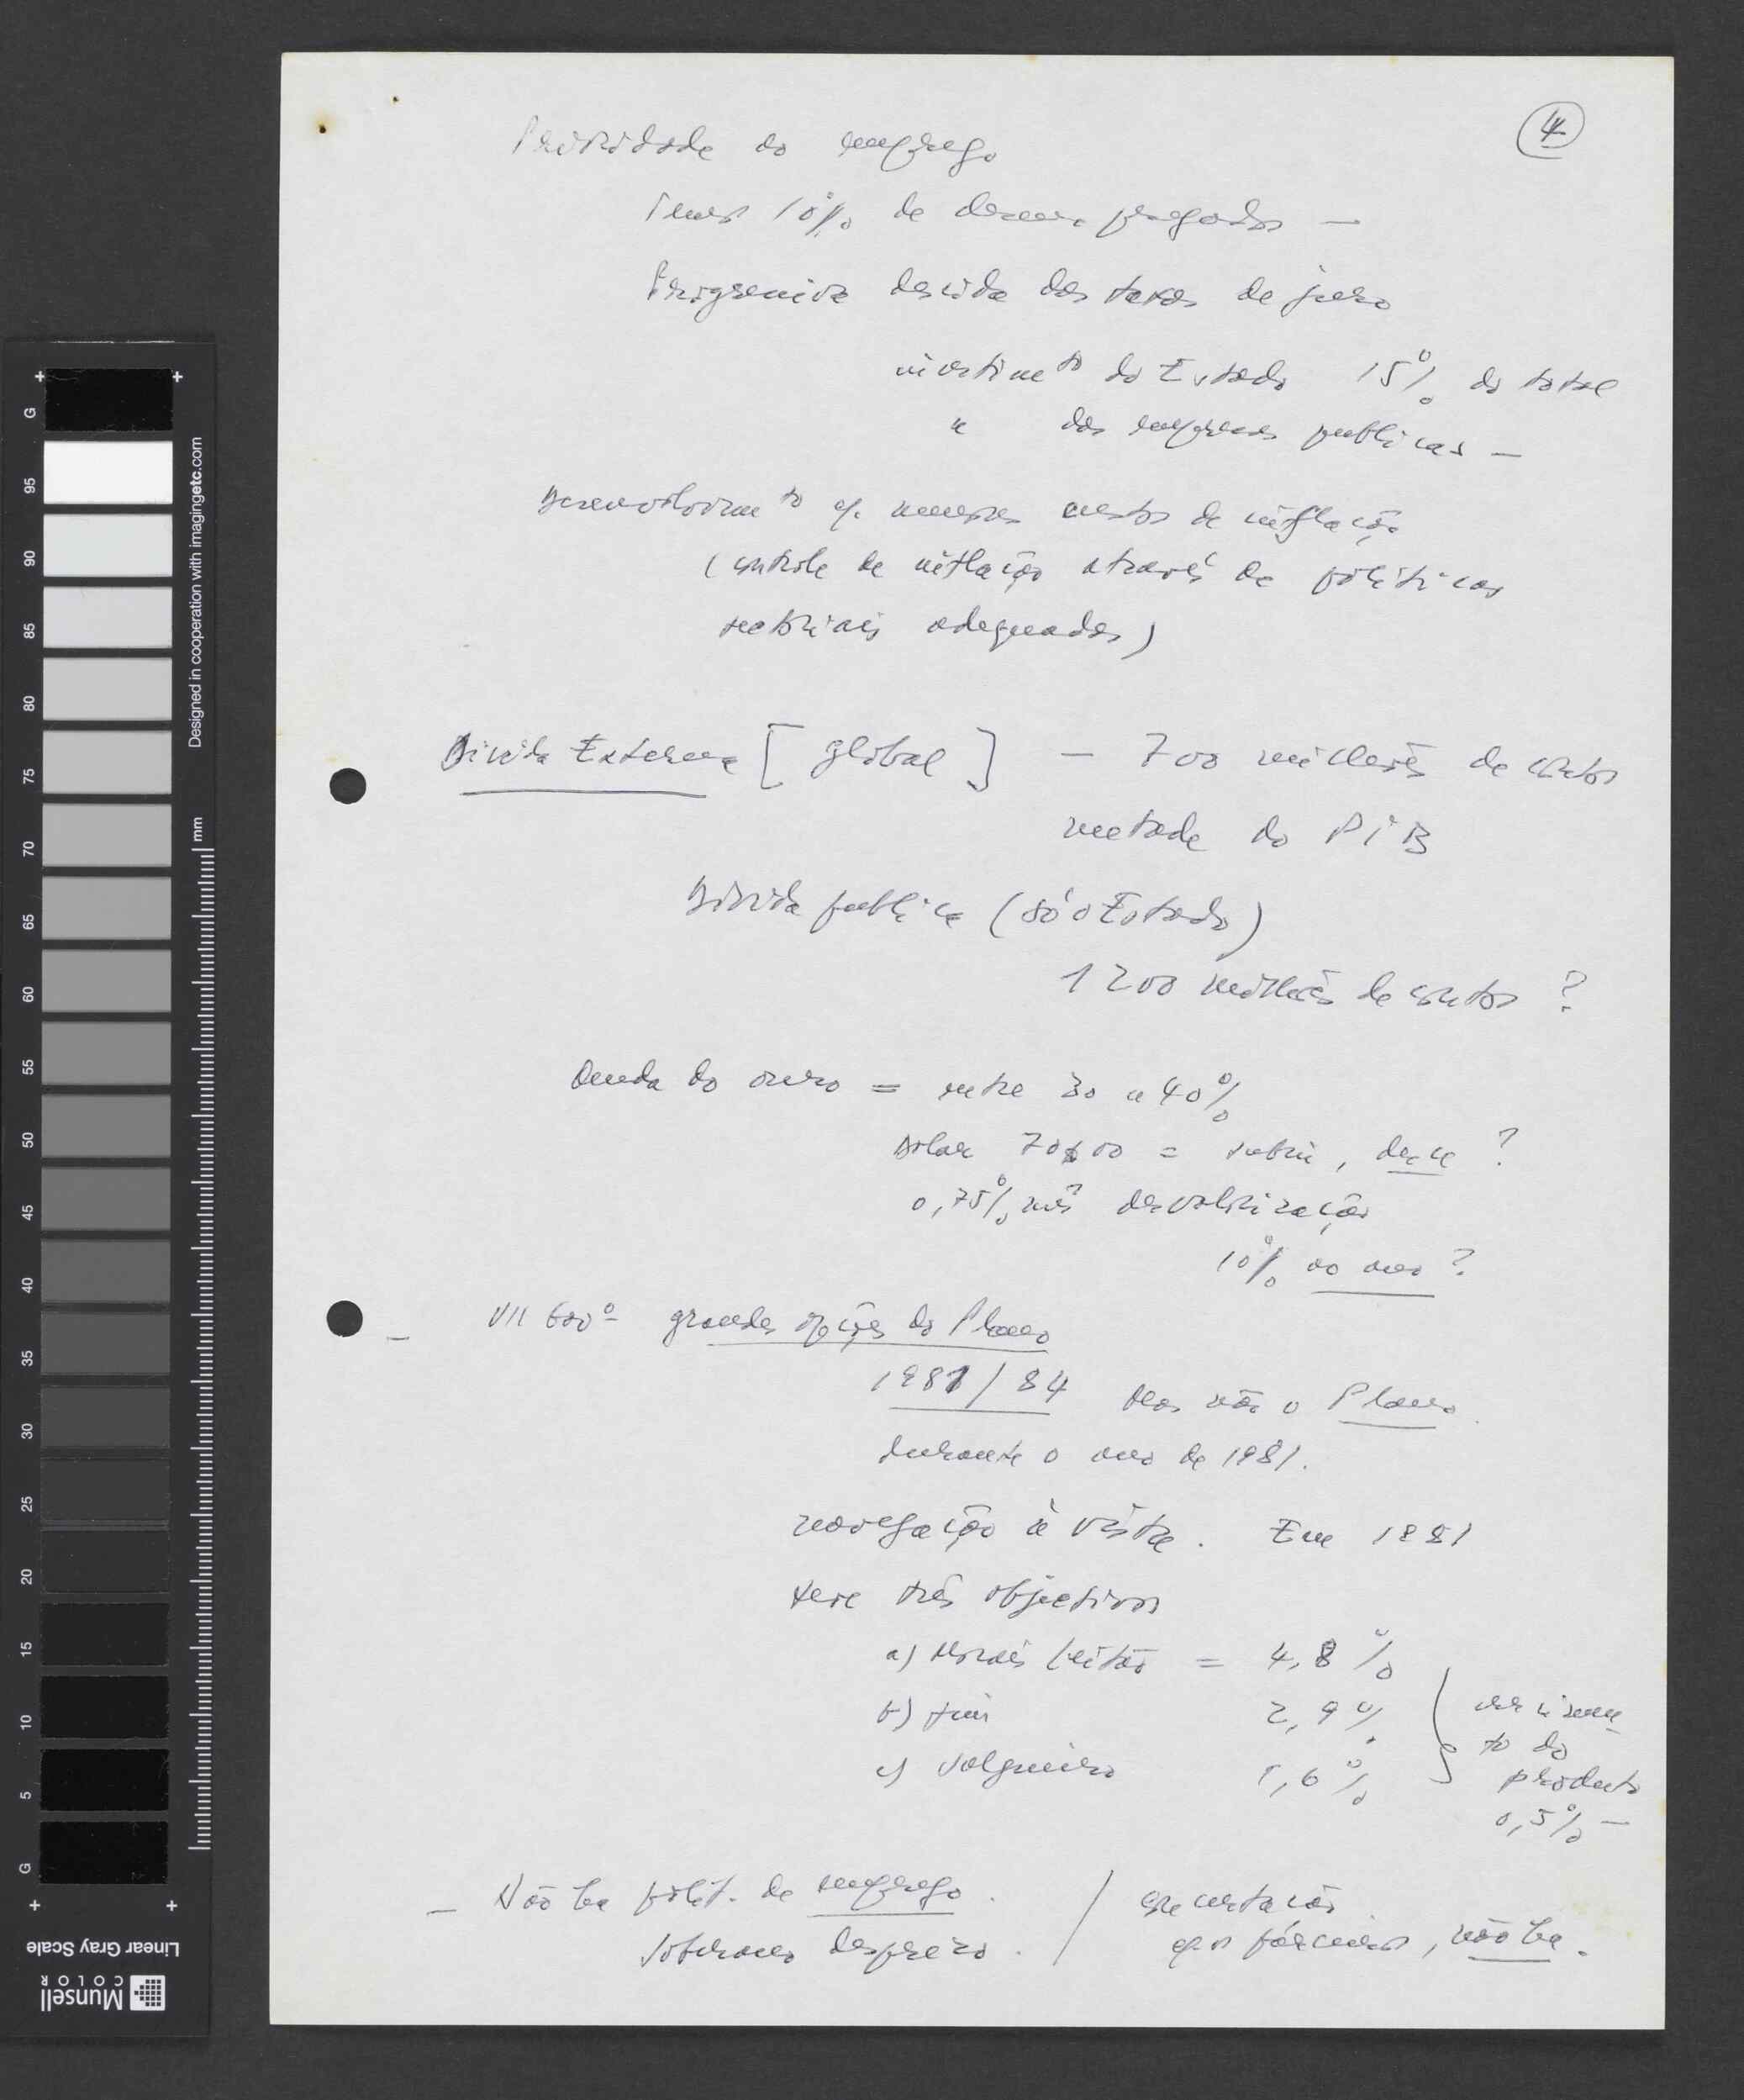 4
Prioridade ao emprego
Temos 10% de desempregados —
Progressiva descida das taxas de juro
investimto do Estado 15% do total
" das empresas publicas —
Desenvolvimto c/ menores custos de inflação
(controle de inflação através de politicas
sectoriais adequadas)
Divida Externa [global] — 700 milhões de contos
metade do PIB
Divida publica (só o Estado)
1200 milhões de contos ?
do ouro = entre 30 a 40%
Dolar 70$00 = subiu, desce ?
0,75% mês desvalorização
10% ao ano ?
— VII Govº - grandes opções do Plano
1981/84 Mas não o Plano.
durante o ano de 1981.
navegação à vista. Em 1981
teve três objectivos
a) Morais Leitão = 4,8%
b) 2,9%
c) Salgueiro 1,6%
crescimen
to do
producto
0,5% —
— Não há polit. de emprego.
Soberano desprezo.
/ concertação
c/ os parceiros, não há.
95
90
85
80
75
70
65
60
55
50
45
40
35
30
25
20
15
10
5
G
G
mm
Designed in cooperation with imagingetc.com
Linear Gray Scale
Munsell
COLOR